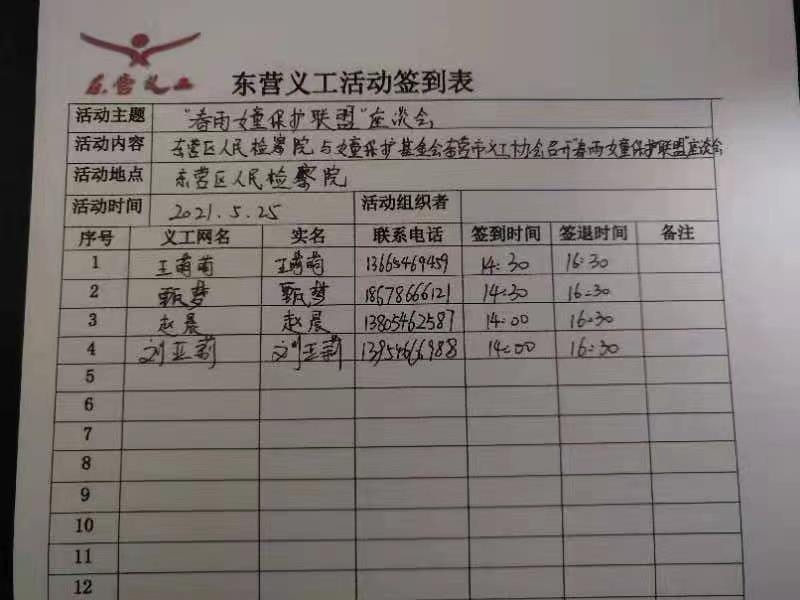 东营义工
东营义工活动签到表
活动主题 "春雨女童保护联盟"座谈会
活动内容 东营区人民检察院与女童保护基金会东营市义工协会召开"春雨女童保护联盟"座谈会
活动地点 东营区人民检察院
活动时间 2021.5.25 活动组织者
序号 义工网名 实名 联系电话 签到时间 签退时间 备注
1 王萌萌 王萌萌 13665469459 14:30 16:30
2 甄梦 甄梦 18678666121 14:30 16:30
3 赵晨 赵晨 13805462587 14:00 16:30
4 刘亚莉 刘亚莉 13954666988 14:00 16:30
5
6
7
8
9
10
11
12